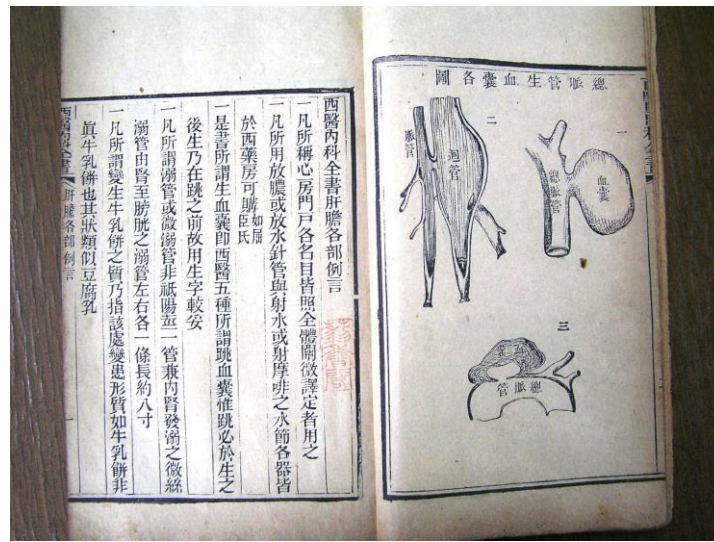 總脈管生血囊各圖
一
血囊
總脈管
二
迴管
脈管
三
血囊
總脈管
西醫內科全書肝膽各部例言
一凡所稱心房門戶各名目皆照全體闡微譯定者用之
一凡所用放膿或放水針管與射水或射摩啡之水節各器皆
於西藥房可購如屈臣氏
一是書所謂生血囊卽西醫五種所謂跳血囊惟跳必於生之
後生乃在跳之前故用生字較妥
一凡所謂溺管或微溺管非祗陽莖一管兼內腎發溺之微絲
溺管由腎至膀胱之溺管左右各一條長約八寸
一凡所謂變生牛乳餅之質乃指該處變患形質如牛乳餅非
眞牛乳餅也其狀類似豆腐乳
西醫內科全書
肝膽各部例言
一